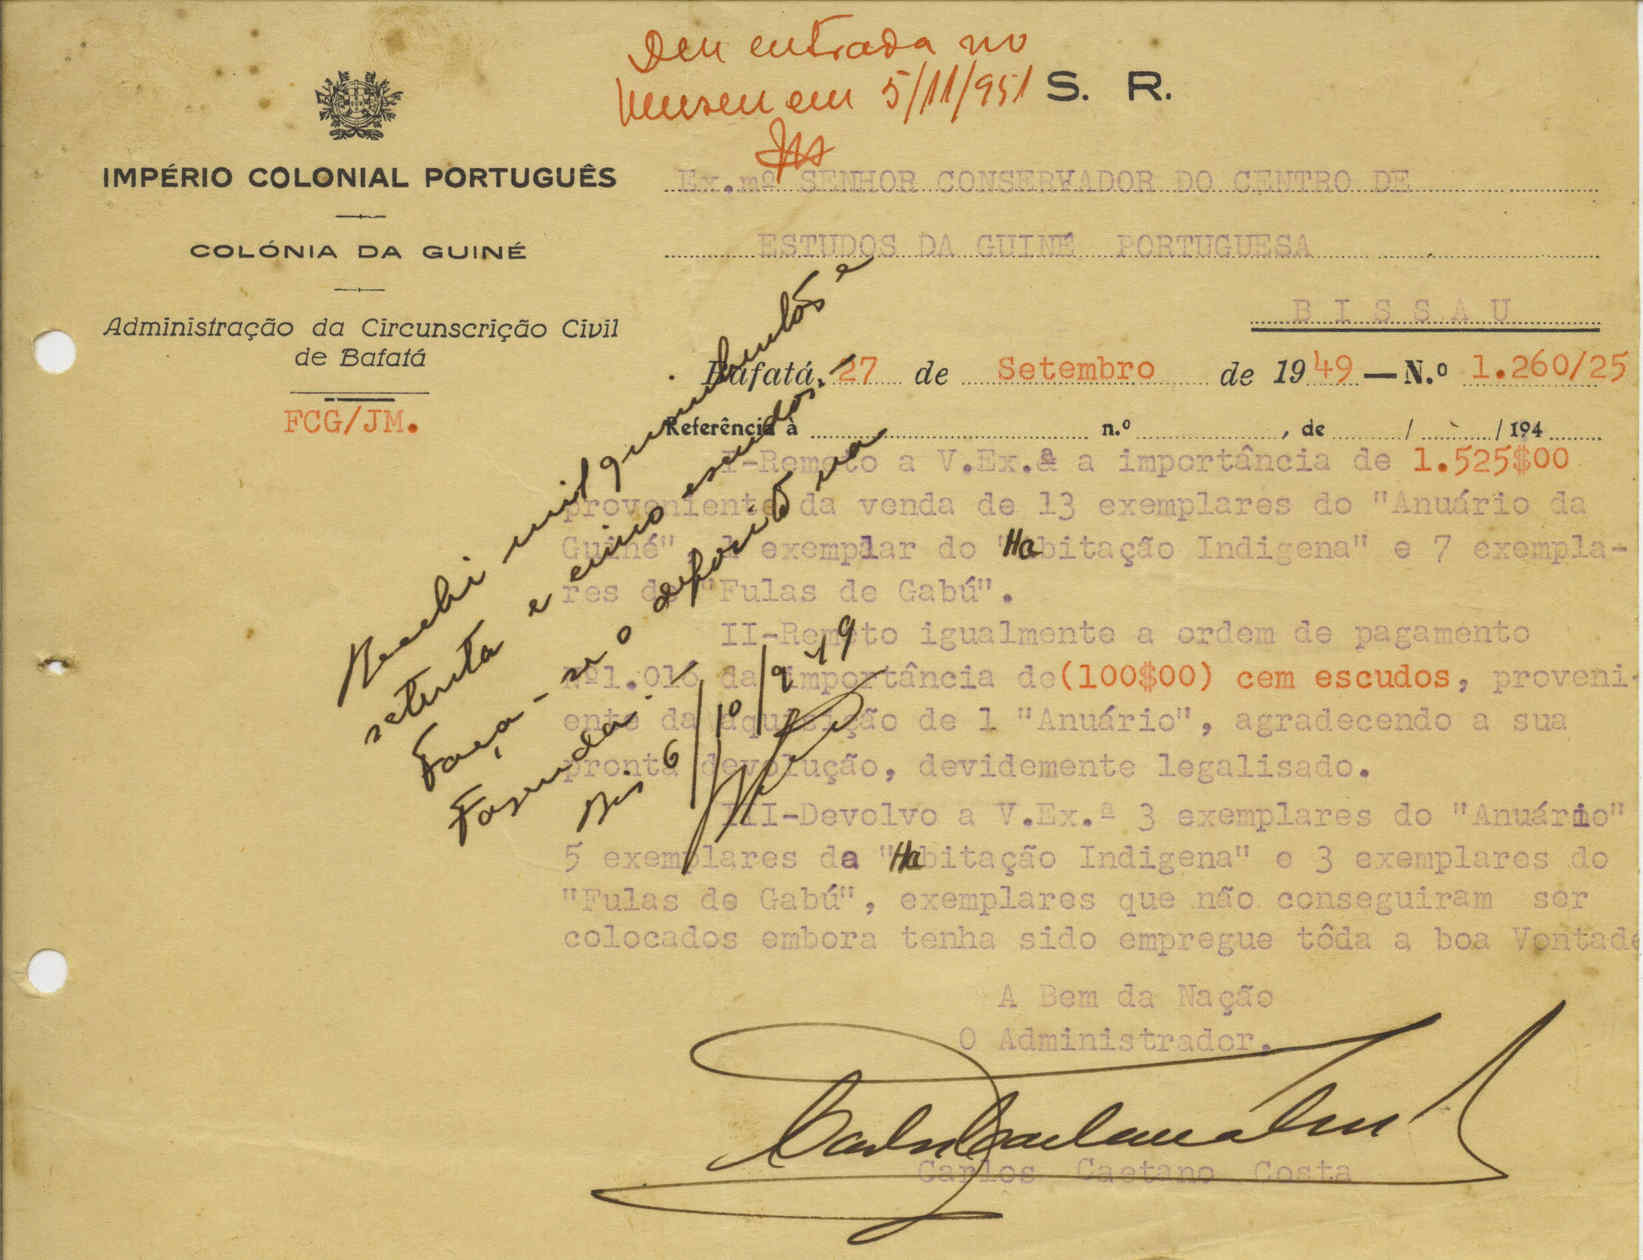 Deu entrada no
Museu em 5/11/951
S. R.
IMPÉRIO COLONIAL PORTUGUÊS
COLÓNIA DA GUINÉ
Administração da Circunscrição Civil
de Bafatá
FCG/JM.
Ex.mº SENHOR CONSERVADOR DO CENTRO DE
ESTUDOS DA GUINÉ PORTUGUESA
BISSAU
Bafatá, 27 de Setembro de 1949 — N.º 1.260/25
Referência à n.º , de / / 194
I-Remeto a V.Ex.ª a importância de 1.525$00
proveniente da venda de 13 exemplares do "Anuário da
Guiné" 1 exemplar do "Habitação Indigena" e 7 exempla-
res de "Fulas de Gabú".
II-Remeto igualmente a ordem de pagamento
Nº1.016 da importância de(100$00) cem escudos, proveni-
ente da aquisição de 1 "Anuário", agradecendo a sua
pronta devolução, devidemente legalisado.
III-Devolvo a V.Ex.ª 3 exemplares do "Anuário"
5 exemplares da "Habitação Indigena" e 3 exemplares do
"Fulas de Gabú", exemplares que não conseguiram ser
colocados embora tenha sido empregue tôda a boa Vontade
A Bem da Nação
O Administrador.
Carlos Caetano Costa
Recebi mil quinhentos e
setenta e cinco escudos.
Faça-se o deposito na
Fazenda.
Bis 6/10/949